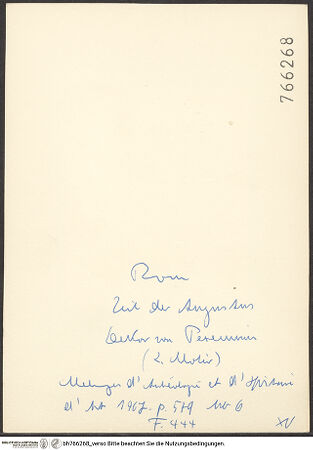 766268
Rom
Zeit des Augustus
Dekor von Perennius
(2. Motiv)
Melanges d'Archéologie et d'Histoire
d'Art 1967. p. 519 No 6
F. 444
XV
bh766268_verso Bitte beachten Sie die Nutzungsbedingungen.